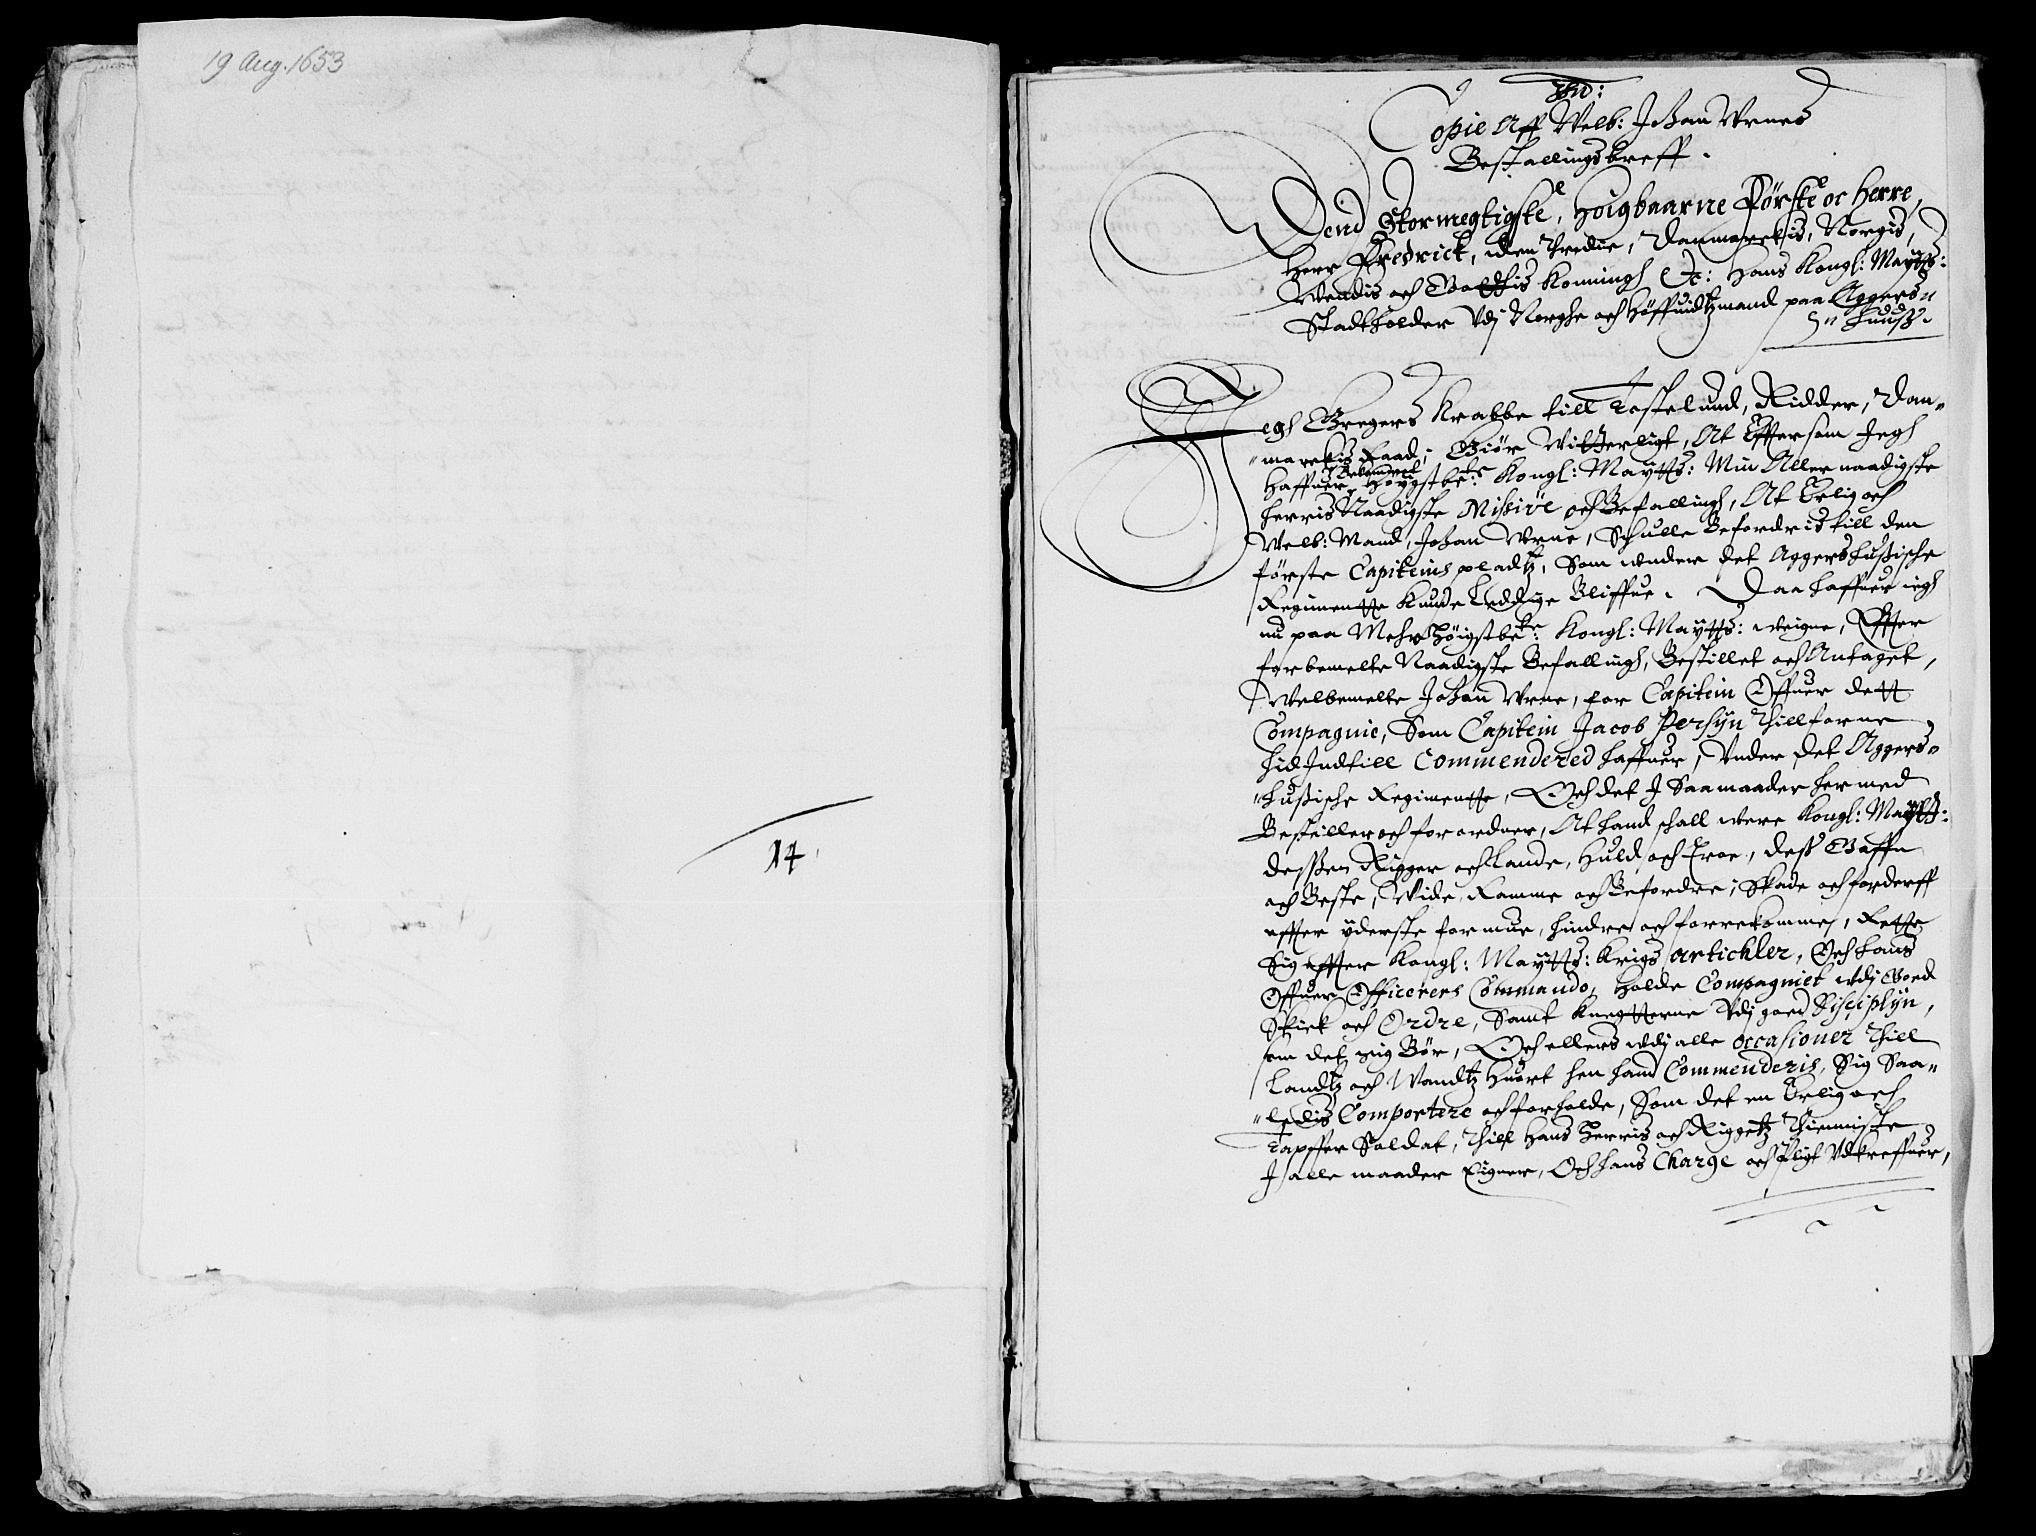 19 Aug. 1653
14.
Copie Aff Velb: Johan Vrnes
Bestallingsbreff.
Dend Stormegtigste, Høigbaarne Første oc Herre,
Herr Fredrick, den Tredie, Danmarckis, Norgis,
Wendis och Gothis Konningh &c: Hans Kongl: Maÿtts:
Stadtholder Vdj Norghe och Høffuidtzmand paa Aggers"
"huusz.
Jegh Gregers Krabbe till Tostelund, Ridder, Dan"
"marckis Raad; Giør Vitterligt, At Effter som Jegh
Haffuer Bekommet Høÿgstbe:te Kongl: Maÿtts: Min Aller naadigste
Herris Naadigste Missive och Befallingh, At Erlig och
Velb: Mand, Johan Vrne, Schulle Befordris till den
første Capiteins pladtz, Som vnder det Aggershusische
Regimentte Kunde Leddige Bliffue. Daa haffuer iegh
nu paa Mehr Høigstbe:te Kongl: Maÿtts: weigne, Effter
forbemelte Naadigste Befallingh, Bestillet och Antaget,
Velbemelte Johan Vrne, for Capitein Offuer dett
Compagnie, Som Capitein Jacob Persÿn Thillforne
hid Indtill Commendered haffuer, Vnder det Aggers"
"husische Regimentte, Och det J Saa maader hermed
Bestiller och forordner, At hand schall were Kongl: Maÿtts:
desszen Rigger och Lande, Huld och Troe, desz Gaffn
och Beste, Vide, Ramme och Befordre; Skade och forderff
effter ÿderste formue, hindre och forrekomme, Rette
Sig effter Kongl: Maÿtts: Krigs artickler, Och hans
Offuer Officerers Commando, Holde Compagniet vdj Goed
Skick och Ordre, Samt Knegtterne Vdj goed Disciplÿn,
som det sig Bør, Och ellers vdj alle occasioner Thill
Landtz och Vandtz Huort hen hand Commenderis, Sig Saa"
"ledis Comportere och forholde, Som det en Erlig och
Tapffer Soldat, Thill Hans Herris och Riggetz Thienniste
J alle maader Eigner, Och hans Charge och Pligt Vdkreffuer,